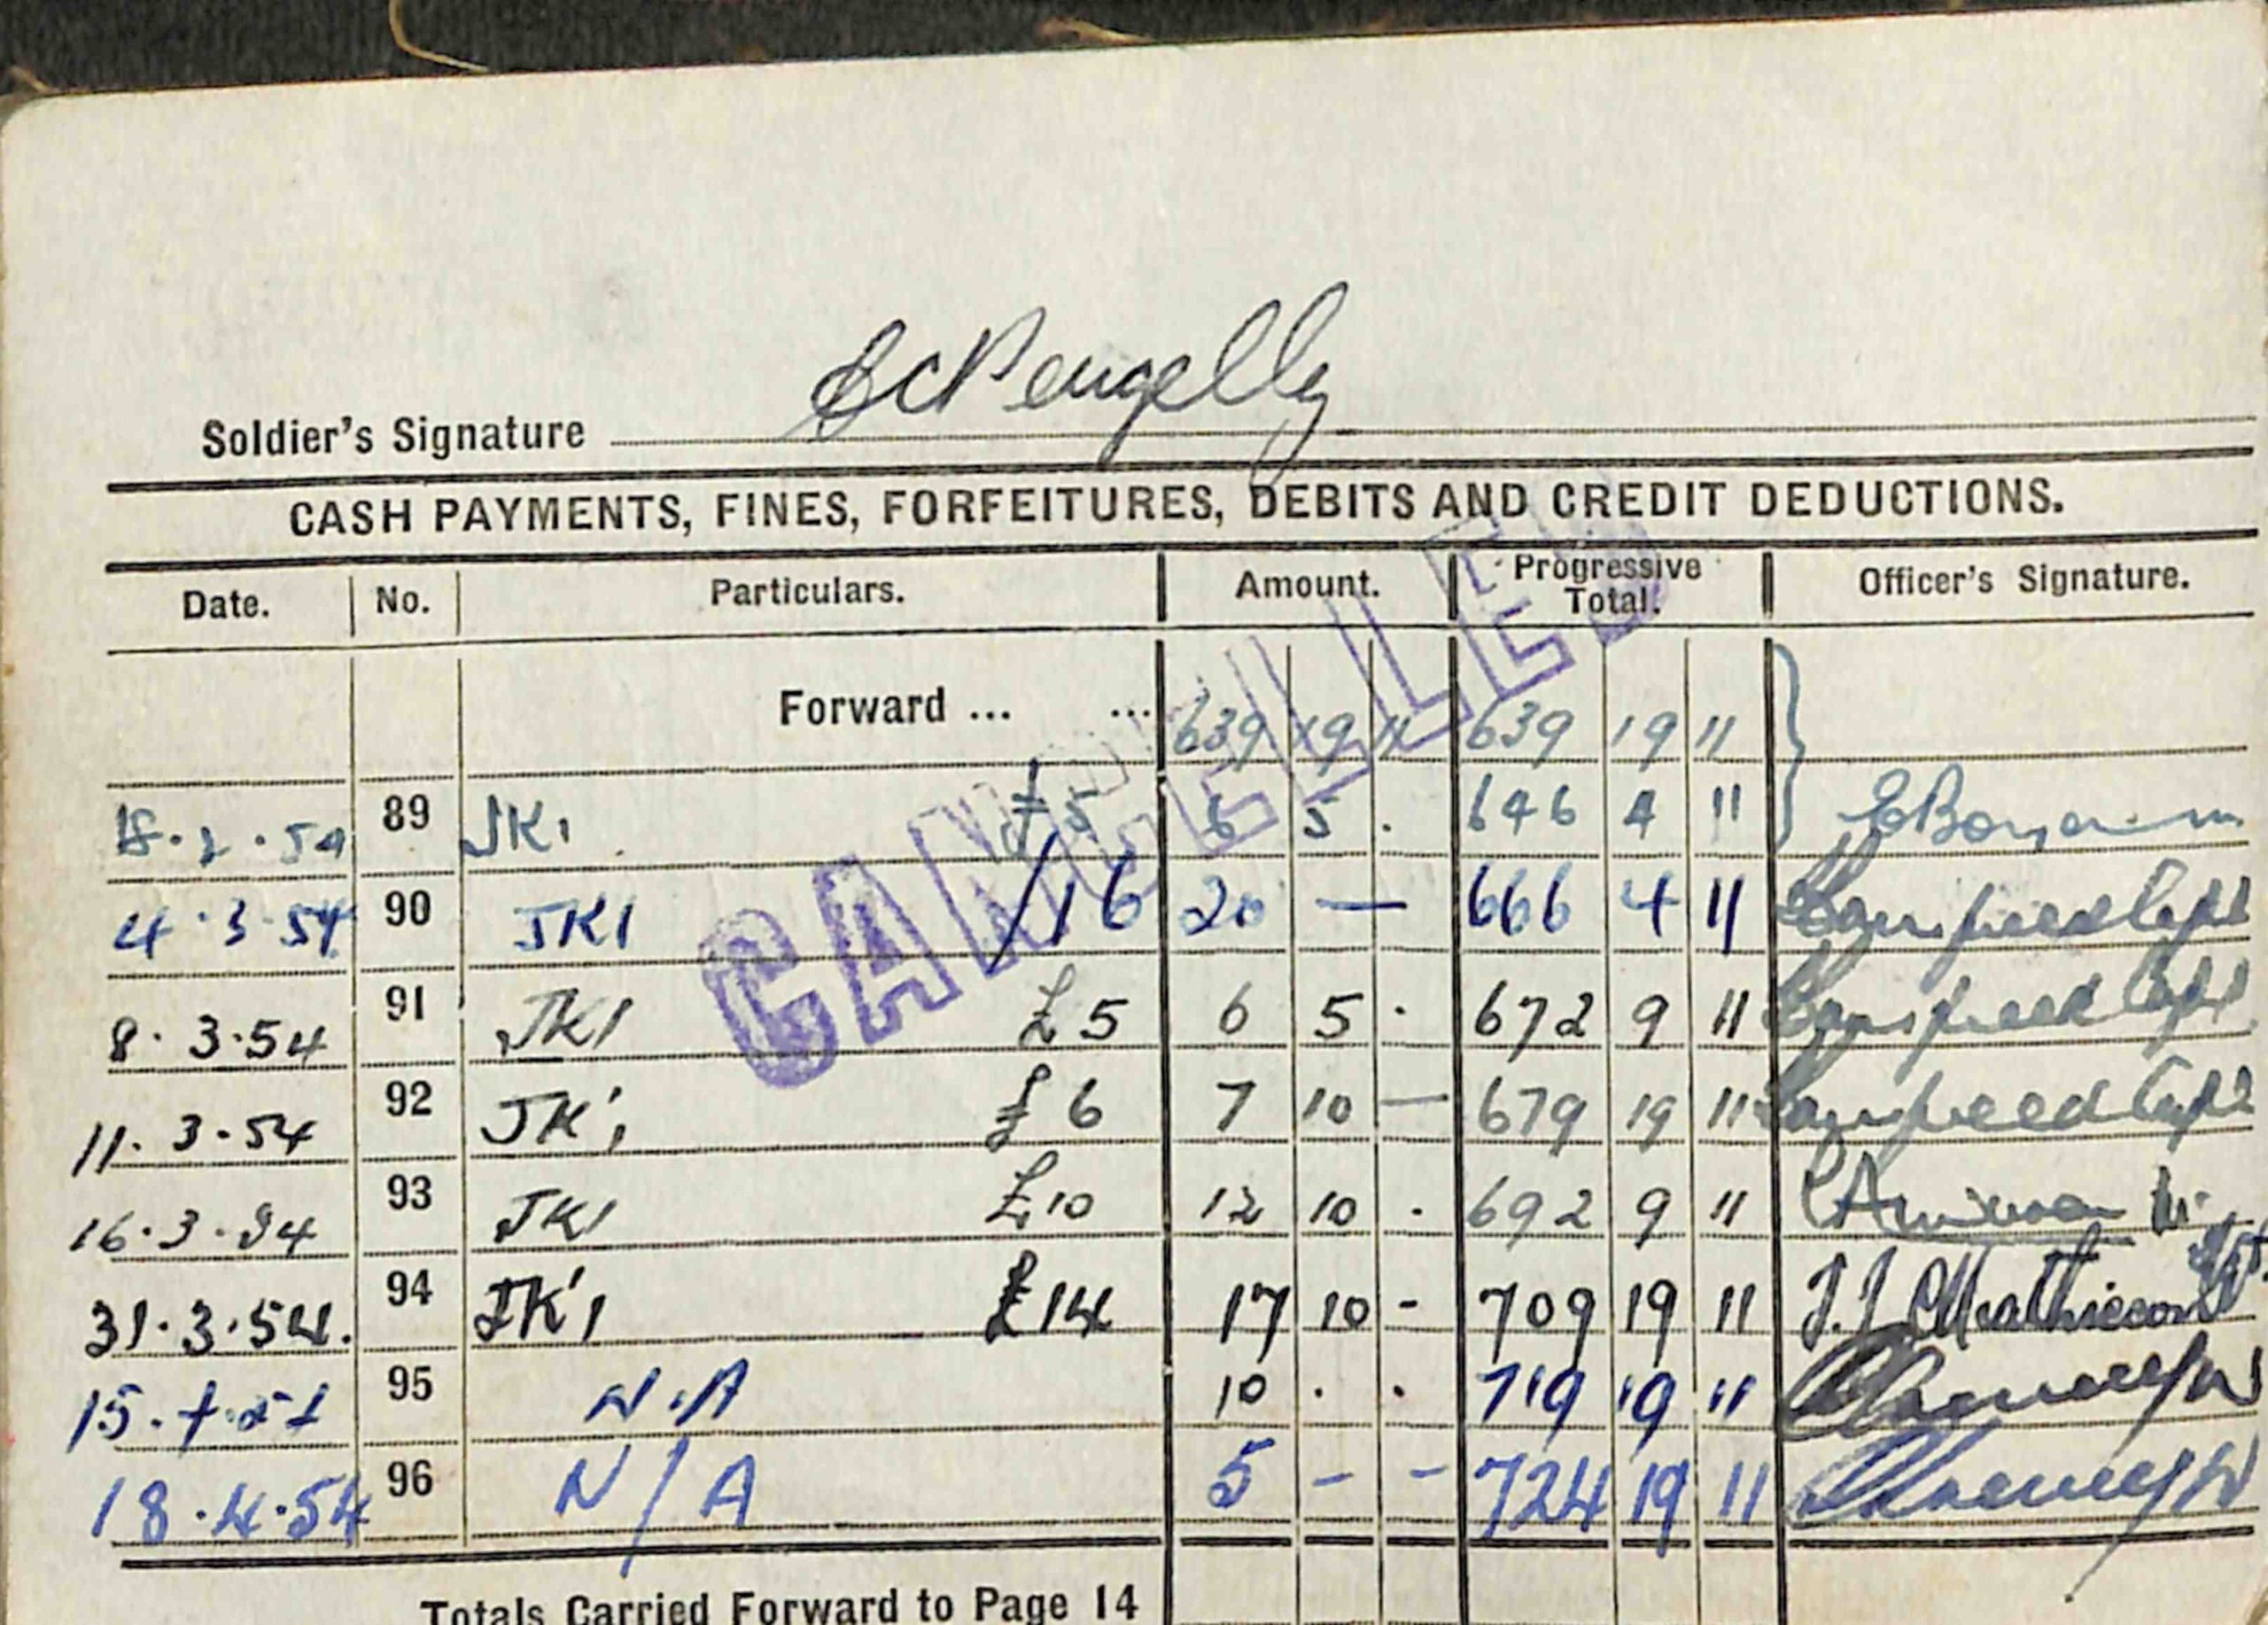 Soldier's Signature Pengelly
CASH PAYMENTS, FINES, FORFEITURES, DEBITS AND CREDIT DEDUCTIONS.
Date. No. Particulars. Amount. Progressive Total. Officer's Signature.
CANCELLED
Forward ... ... 639 19 11 639 19 11
89 JK1 £5 6 5 . 646 4 11
4.3.54 90 JK1 £16 20 — 666 4 11 Capt
8.3.54 91 JK1 £5 6 5 . 672 9 11 Capt
11.3.54 92 JK1 £6 7 10 — 679 19 11 Capt
16.3.54 93 JK1 £10 12 10 . 692 9 11
31.3.54. 94 JK1 £14 17 10 - 709 19 11 J.J. Mathieson
15.4.54 95 N.A 10 . . 719 19 11
18.4.54 96 N/A 5 - - 724 19 11
Totals Carried Forward to Page 14